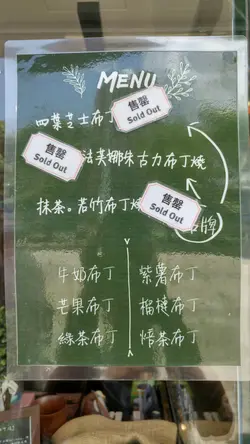 MENU
四葉芝士布丁
售罄
Sold Out
售罄
Sold Out
法芙娜朱古力布丁燒
售罄
Sold Out
抹茶。若竹布丁燒
牌
牛奶布丁
紫薯布丁
芒果布丁
榴槤布丁
綠茶布丁
焙茶布丁